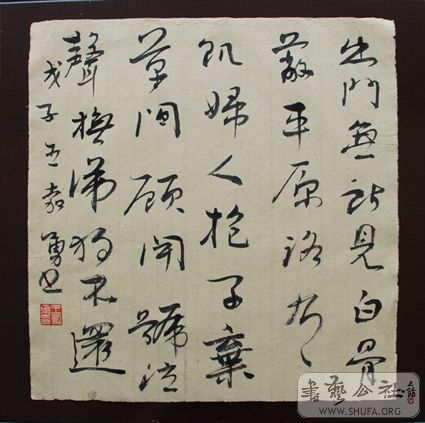 出門無所見白骨
蔽平原路有
飢婦人抱子棄
草間顧聞號泣
聲涕獨不還
戊子勇書
書藝公社
WWW.SHUFA.ORG